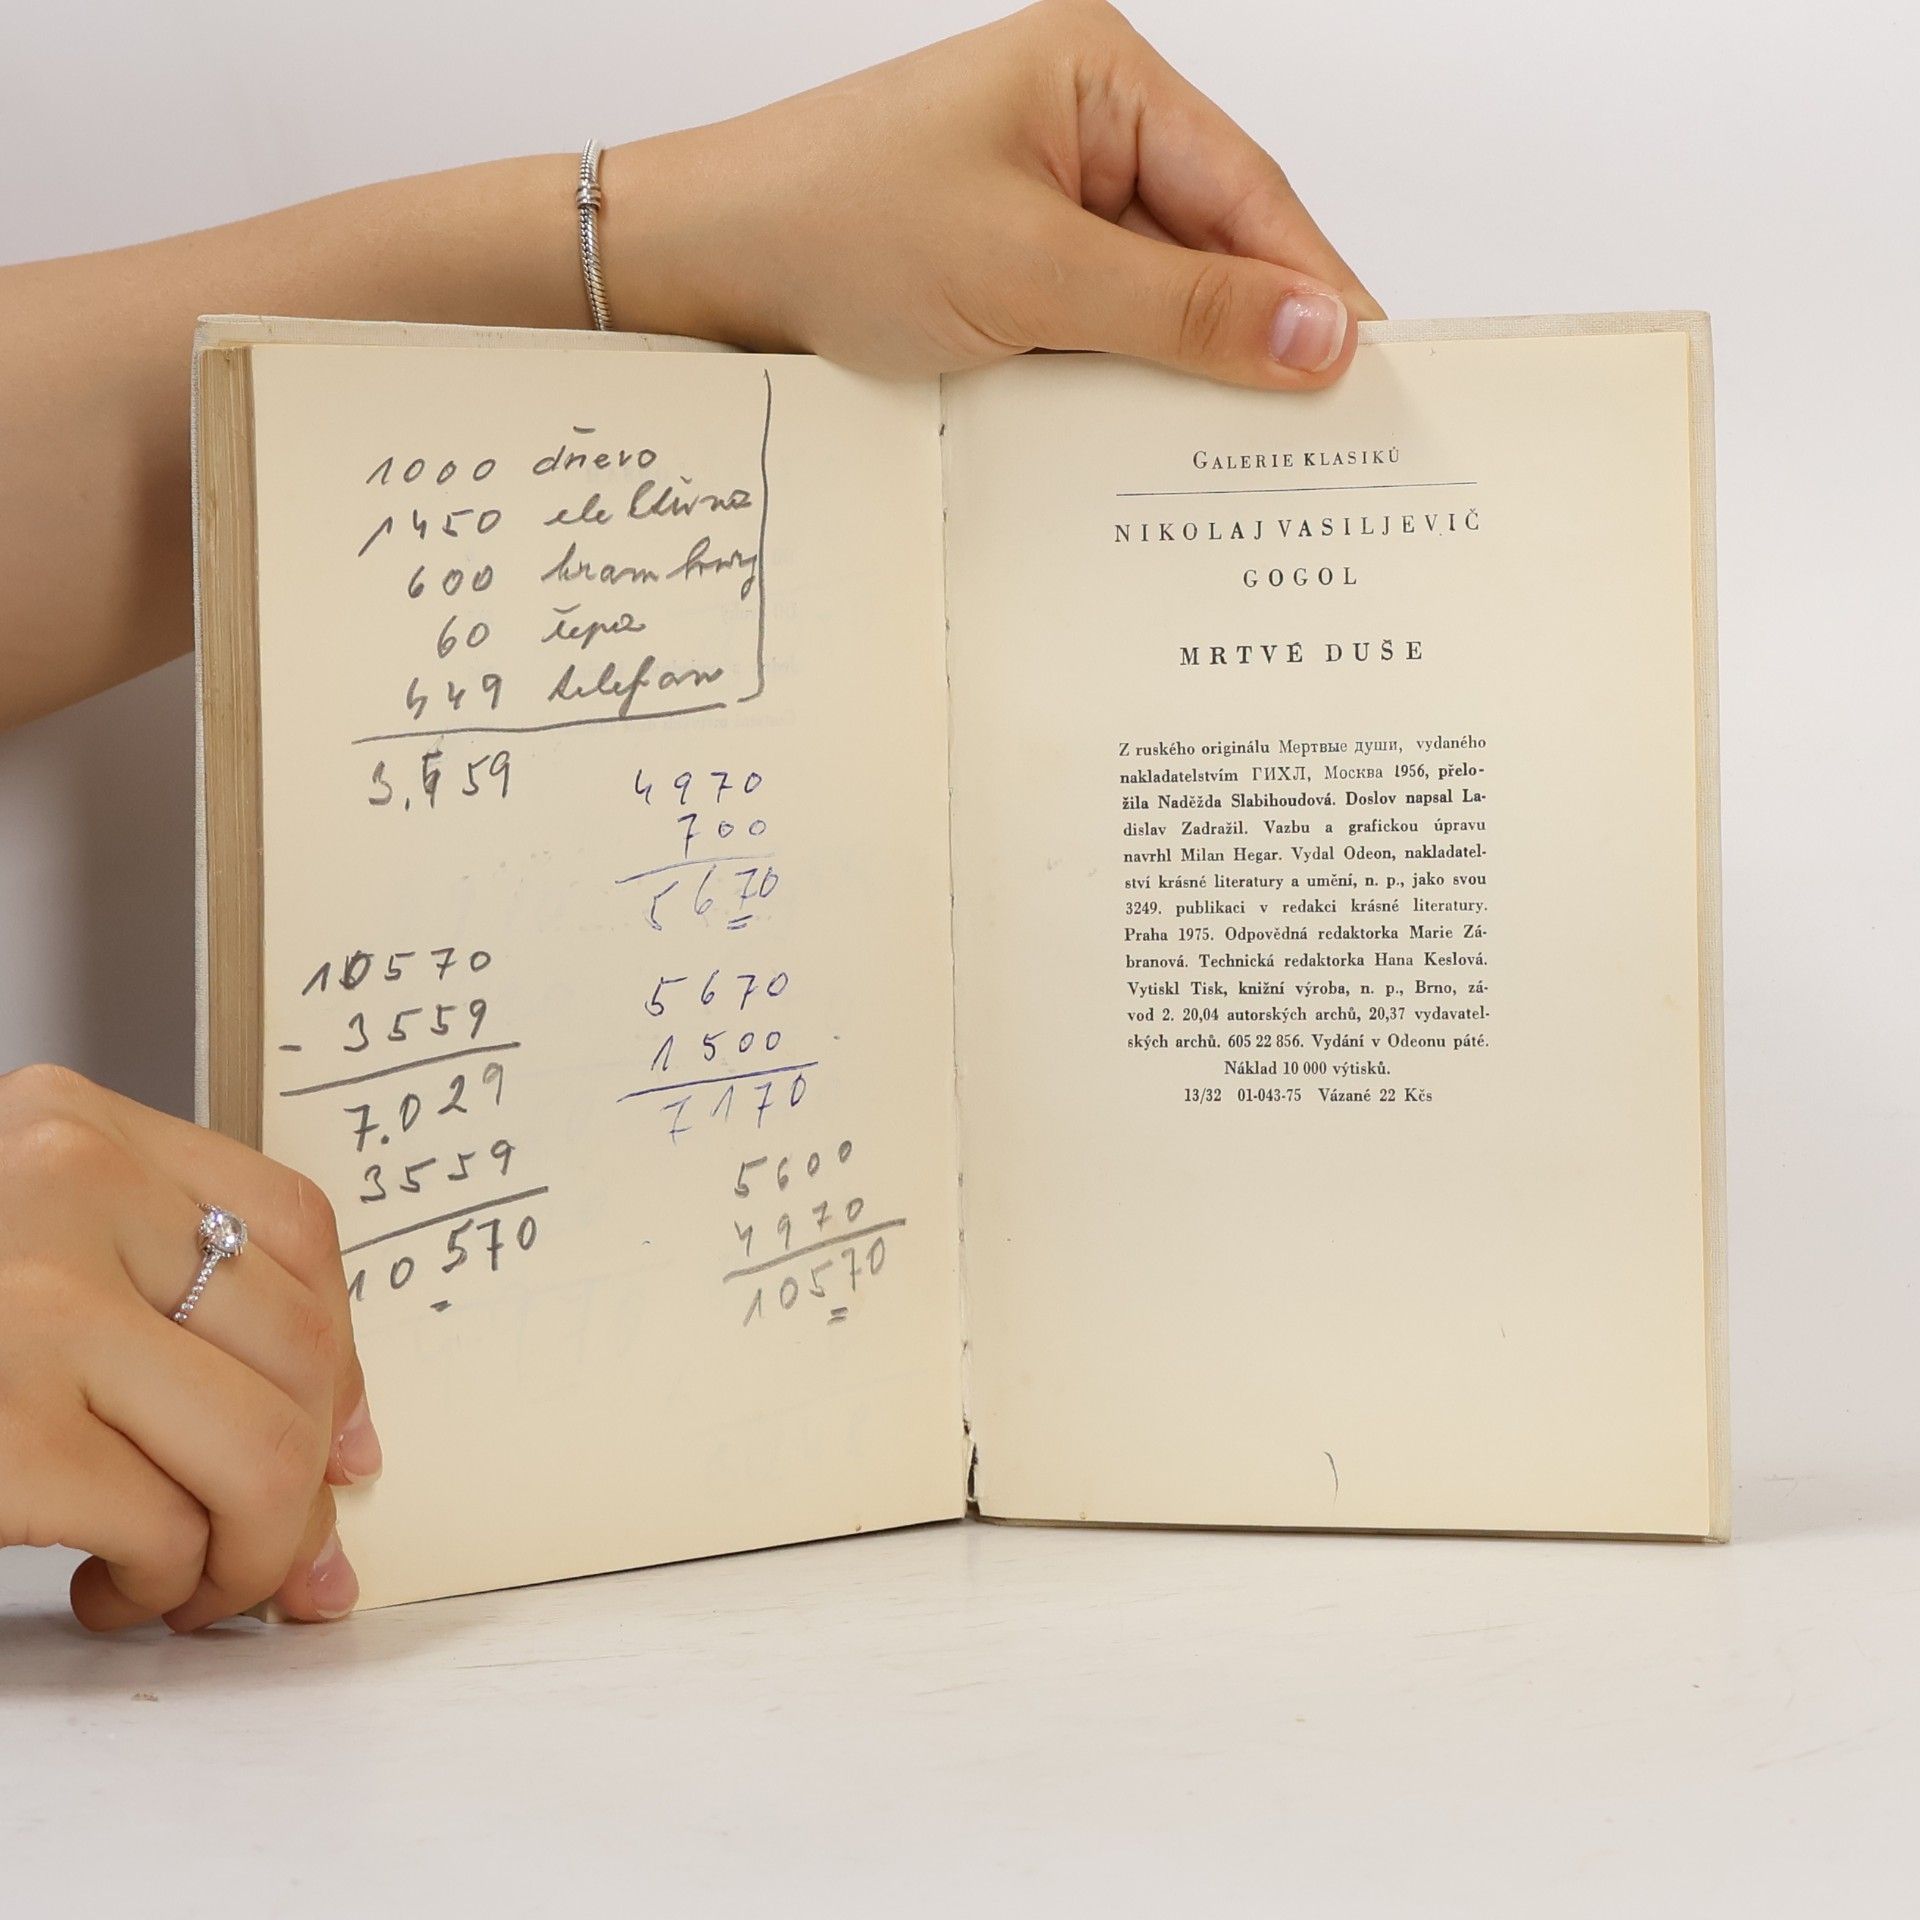 1000 dřevo
1450 elektřina
600 brambory
60 řepa
449 telefon
3.559
4970
700
5670
10570
- 3559
7.029
3559
10570
5670
1500
7170
5600
4970
10570
GALERIE KLASIKŮ
NIKOLAJ VASILJEVIČ
GOGOL
MRTVÉ DUŠE
Z ruského originálu Мертвые души, vydaného
nakladatelstvím ГИХЛ, Москва 1956, přelo-
žila Naděžda Slabihoudová. Doslov napsal La-
dislav Zadražil. Vazbu a grafickou úpravu
navrhl Milan Hegar. Vydal Odeon, nakladatel-
ství krásné literatury a umění, n. p., jako svou
3249. publikaci v redakci krásné literatury.
Praha 1975. Odpovědná redaktorka Marie Zá-
branová. Technická redaktorka Hana Keslová.
Vytiskl Tisk, knižní výroba, n. p., Brno, zá-
vod 2. 20,04 autorských archů, 20,37 vydavatel-
ských archů. 605 22 856. Vydání v Odeonu páté.
Náklad 10 000 výtisků.
13/32 01-043-75 Vázané 22 Kčs